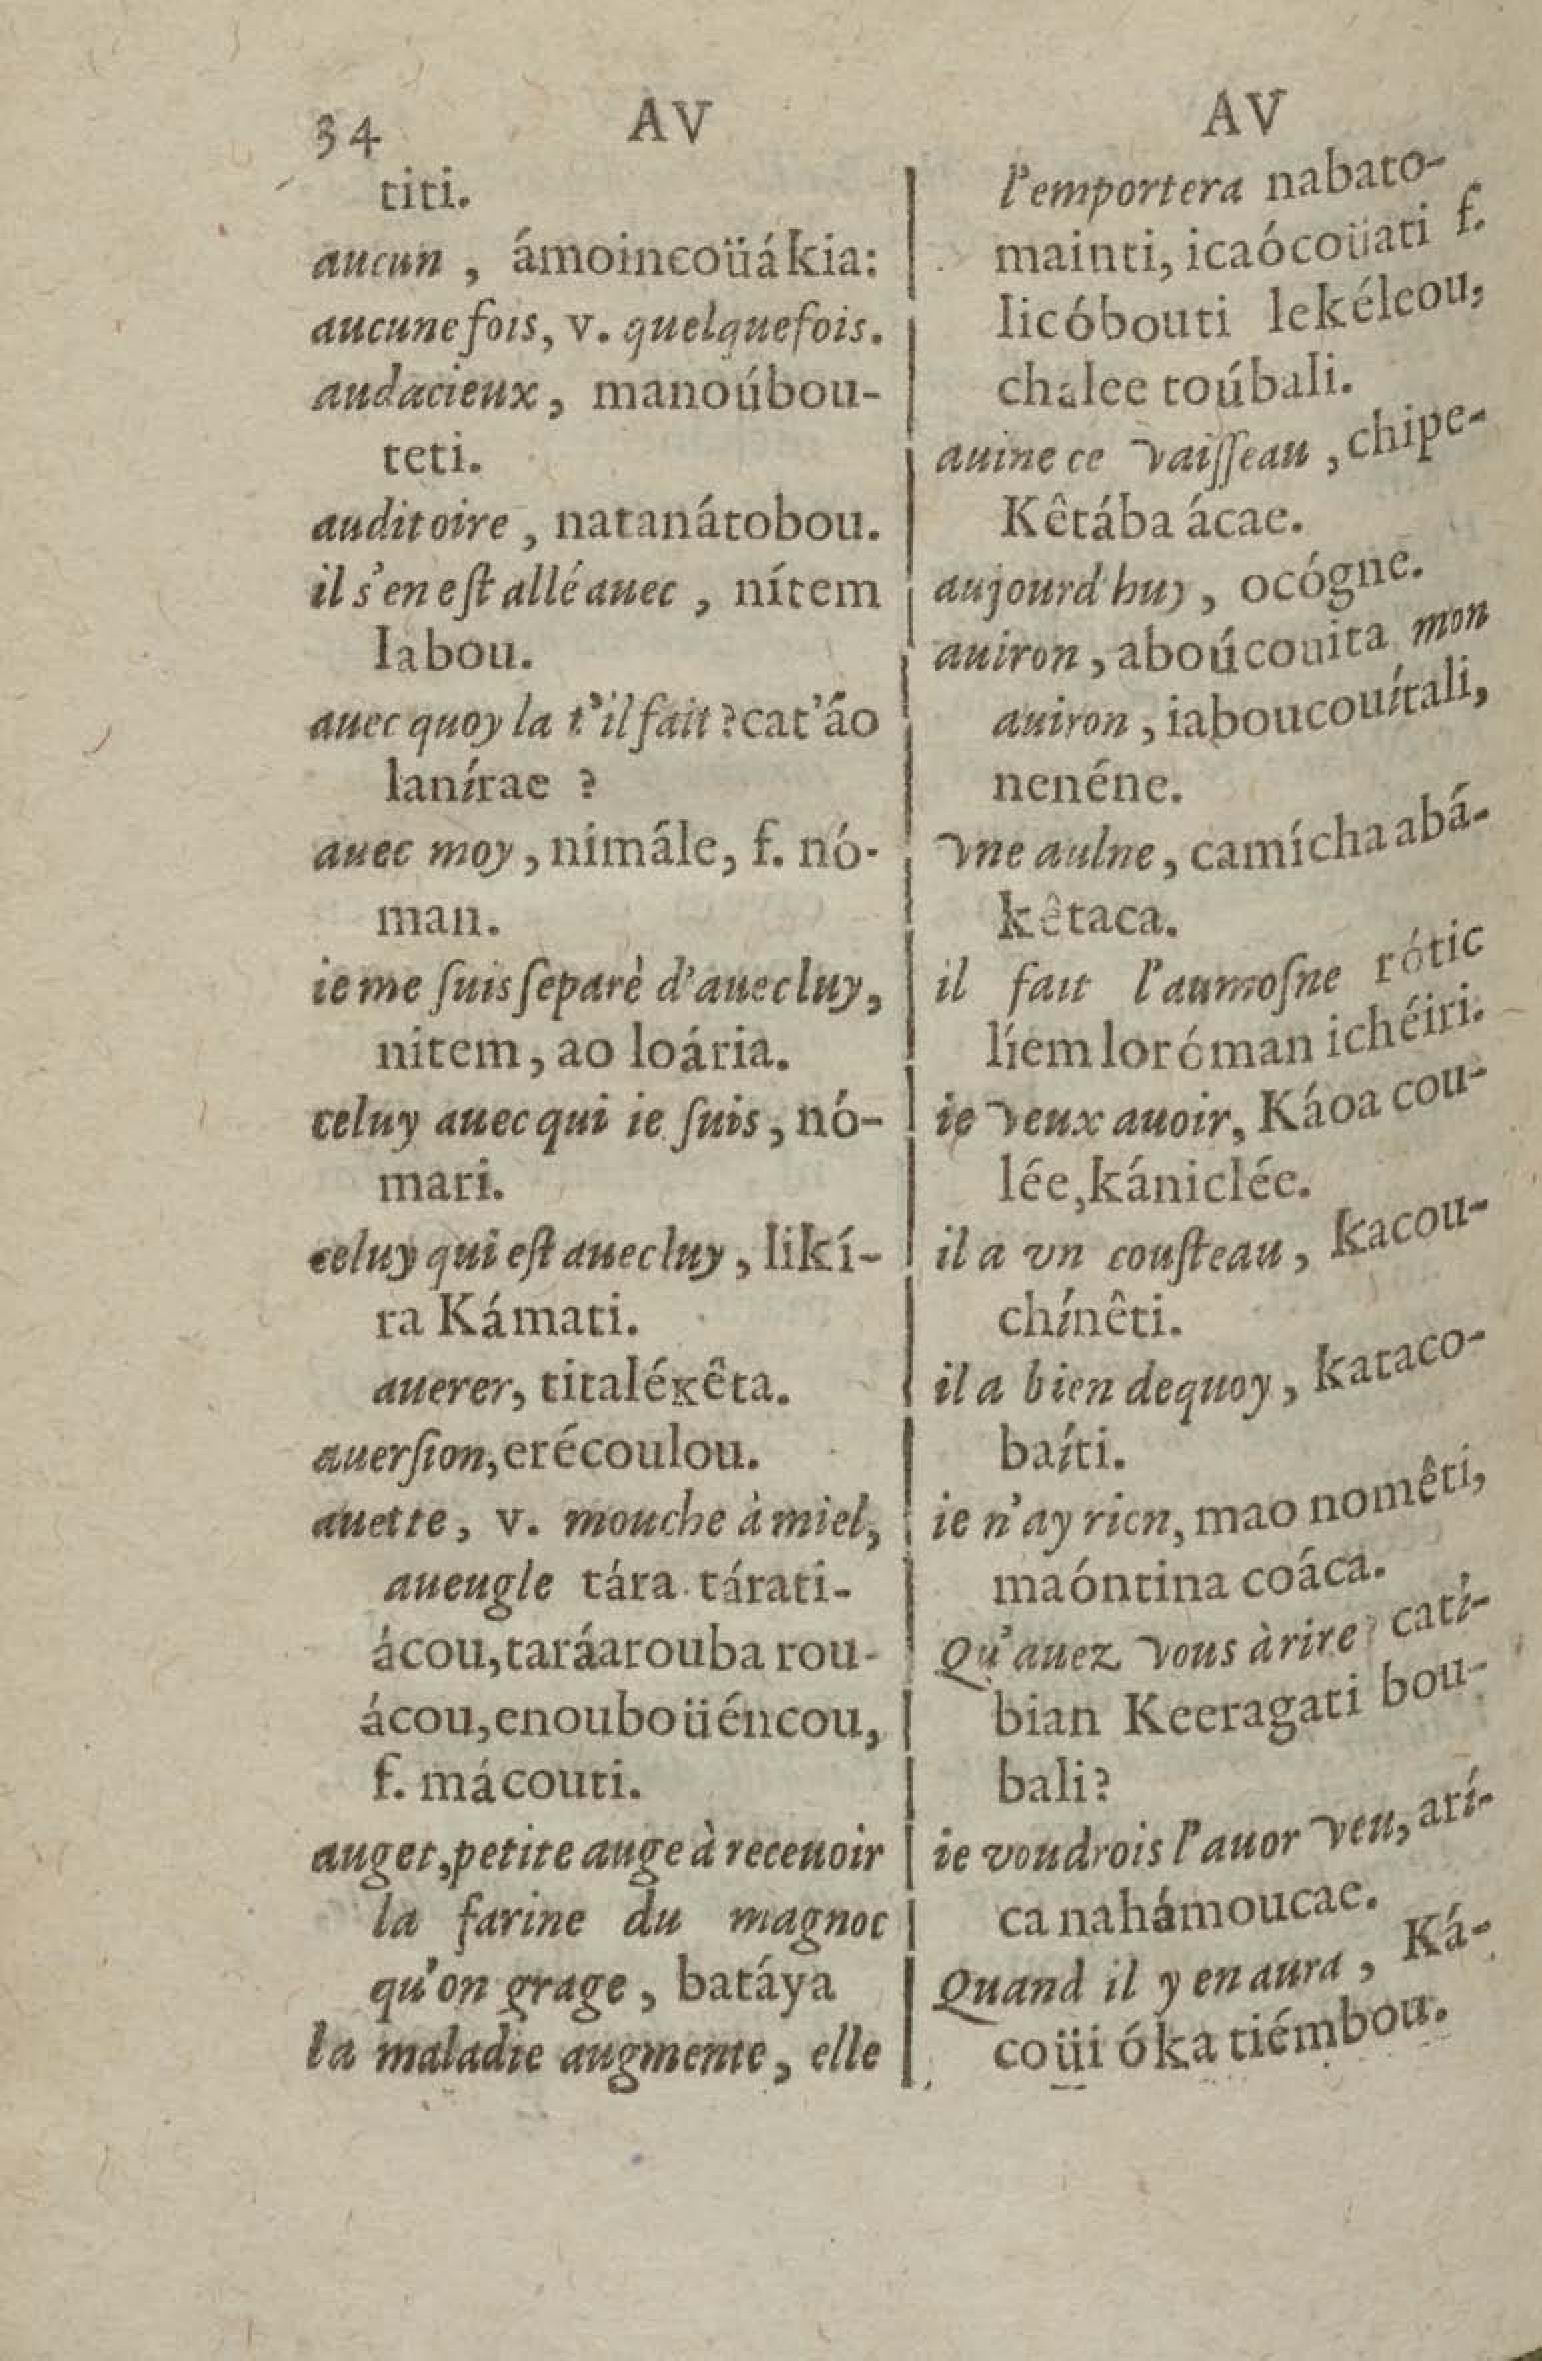 34 AV AV
titi.
aucun , ámoincoüákia:
aucune fois, v. quelquefois.
audacieux, manoúbou-
teti.
auditoire , natanátobou.
il s'en eſt allé auec , nítem
Iabou.
auec quoy la t'il fait ? cat'áo
lanírae ?
auec moy , nimále, f. nó-
man.
ie me ſuis ſeparè d'auec luy,
nitem, ao loária.
celuy auec qui ie ſuis , nó-
mari.
celuy qui eſt auec luy , likí-
ra Kámati.
auerer, titalékêta.
auerſion, erécoulou.
auette, v. mouche à miel,
aueugle tára tárati-
ácou, taráarouba rou-
ácou, enouboüéncou,
f. mácouti.
auget, petite auge à receuoir
la farine du magnoc
qu'on grage , batáya
la maladie augmente , elle
l'emportera nabato-
mainti, icaócoüati f.
licóbouti lekéleou,
chalee toúbali.
auine ce vaiſſeau , chipe-
Kêtába ácae.
aujourd'huy , ocógne.
auiron , aboúcouita mon
auiron , iaboucouítali,
nenéne.
vne aulne , camícha abá-
kêtaca.
il fait l'aumoſne rótic
líem loróman ichéiri.
ie veux auoir, Káoa cou-
lée, kániclée.
il a vn couſteau , kacou-
chínêti.
il a bien dequoy , kataco-
baíti.
ie n'ay rien, mao nomêti,
maóntina coáca.
Qu'auez vous à rire ? catí-
bian Keeragati bou-
bali?
ie voudrois l'auor veu, arí-
ca nahámoucae.
Quand il y en aura , Ká-
coüi óka tiémbou.